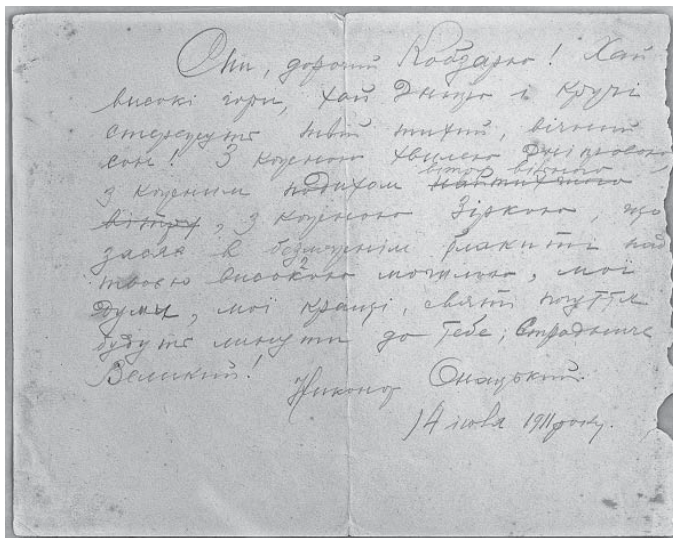 Спи, дорогий Кобзарю! Хай
високі гори, хай Дніпро і кручі
стережуть твій тихий, вічний
сон! З кожною хвилею Дніпровою,
вітру вільного
з кожним подихом найтихшого
вітру, з кожною зіркою, що
засяя в безмежнім блакиті над
твоєю високою могилою, мої
думи, мої кращі, святі почуття
будуть линути до Тебе, Страдниче
Великий!
Никанор Онацький.
14 іюля 1911 року.